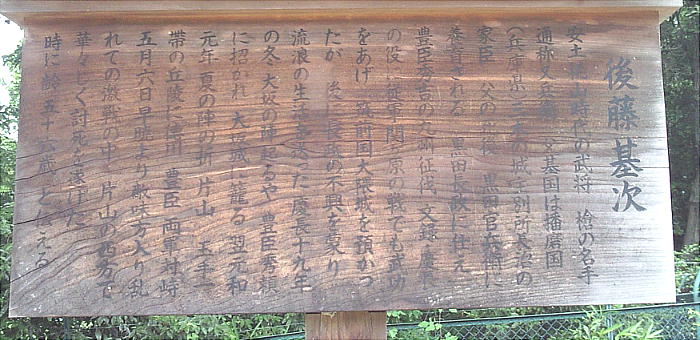 後藤基次
安土桃山時代の武将 槍の名手
通称又兵衛 父基国は播磨国
(兵庫県)三木の城主別所長治の
家臣 父の没後 黒田官兵衛に
養育される 黒田長政に仕え
豊臣秀吉の九州征伐 文録 慶長
の役に従軍関ヶ原の戦でも武功
をあげ 筑前国大隈城を預かっ
たが 後に長政の不興を買り
流浪の生活を送った 慶長十九年
の冬 大坂の陣起るや 豊臣秀頼
に招かれ 大坂城に籠る 翌元和
元年 夏の陣の折 片山 玉手一
帯の丘陵に徳川 豊臣 両軍対峙
五月六日早暁より敵味方入り乱
れての激戦の中 片山の西方で
華々しく討死を遂げた
時に齢五十六歳 える